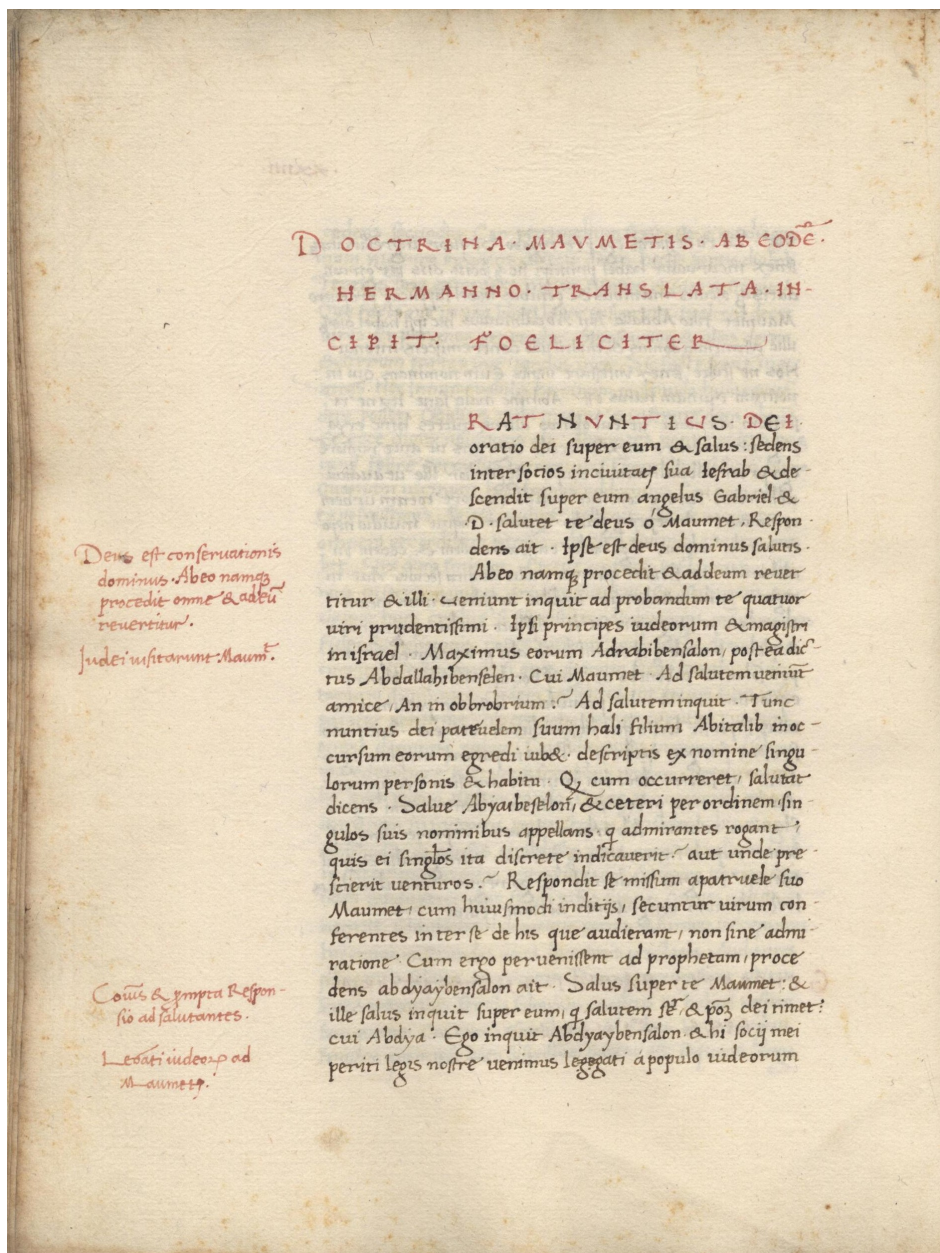 DOCTRINA · MAVMETIS · AB EODĒ ·
HERMANNO · TRANSLATA · IN-
CIPIT · FOELICITER
RAT NVNTIVS · DEI ·
oratio dei super eum & salus : sedens
inter socios in civitate sua Iesrab & de-
scendit super eum angelus Gabriel &
·D· salutet te deus ó Maumet, Respon-
dens ait · Ipse est deus dominus salutis ·
Abeo namq; procedit & addeum rever
titur & illi · veniunt inquit ad probandum te quatuor
viri prudentissimi · Ipsi principes iudeorum & magistri
in israel · Maximus eorum Adrabibensalon, post ea dic-
tus Abdallahibenselen · Cui Maumet · Ad salutem veniūt
amice, An in obbrobrium ? Ad salutem inquit · Tunc
nuntius dei patruelem suum hali filium Abitalib in oc-
cursum eorum egredi iub& · descriptis ex nomine singu-
lorum personis & habitu · Q cum occurreret, salutat
dicens · Salue Abyaibeselon, & ceteri per ordinem, sin-
gulos suis nominibus appellans · q admirantes rogant,
quis ei singlos ita discrete indicaverit ? aut unde pre-
scierit venturos ? Respondit se missum apatruele suo
Maumet, cum huiusmodi inditijs, secuntur virum con-
ferentes inter se de his que audierant, non sine admi-
ratione · Cum ergo pervenissent ad prophetam, proce
dens abdyaybensalon ait · Salus super te Maumet : &
ille salus inquit super eum, q salutem & dei timet :
cui Abdya · Ego inquit Abdyaybensalon & hi socij mei
periti legis nostre venimus legegati a populo iudeorum
Deus est conservationis
dominus · Abeo namq;
procedit omne & ad eū
revertitur ·
Iudei visitarunt Maum̄t ·
& prompta Respon-
sio ad salutantes ·
Legati iudeorum ad
Maumetem ·